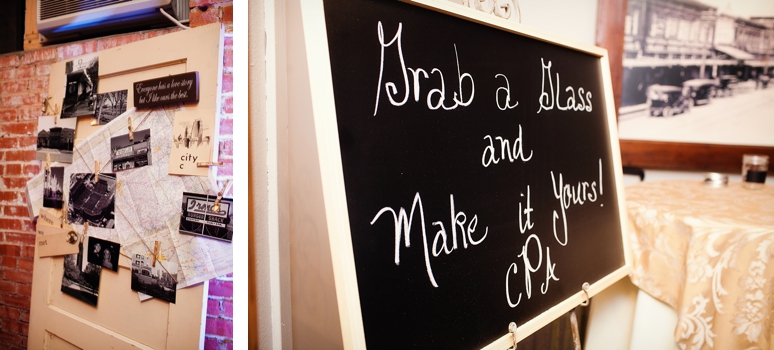 Everyone has a love story
but I like ours the best.
city
c
Grab a Glass
and
Make it Yours!
CPA